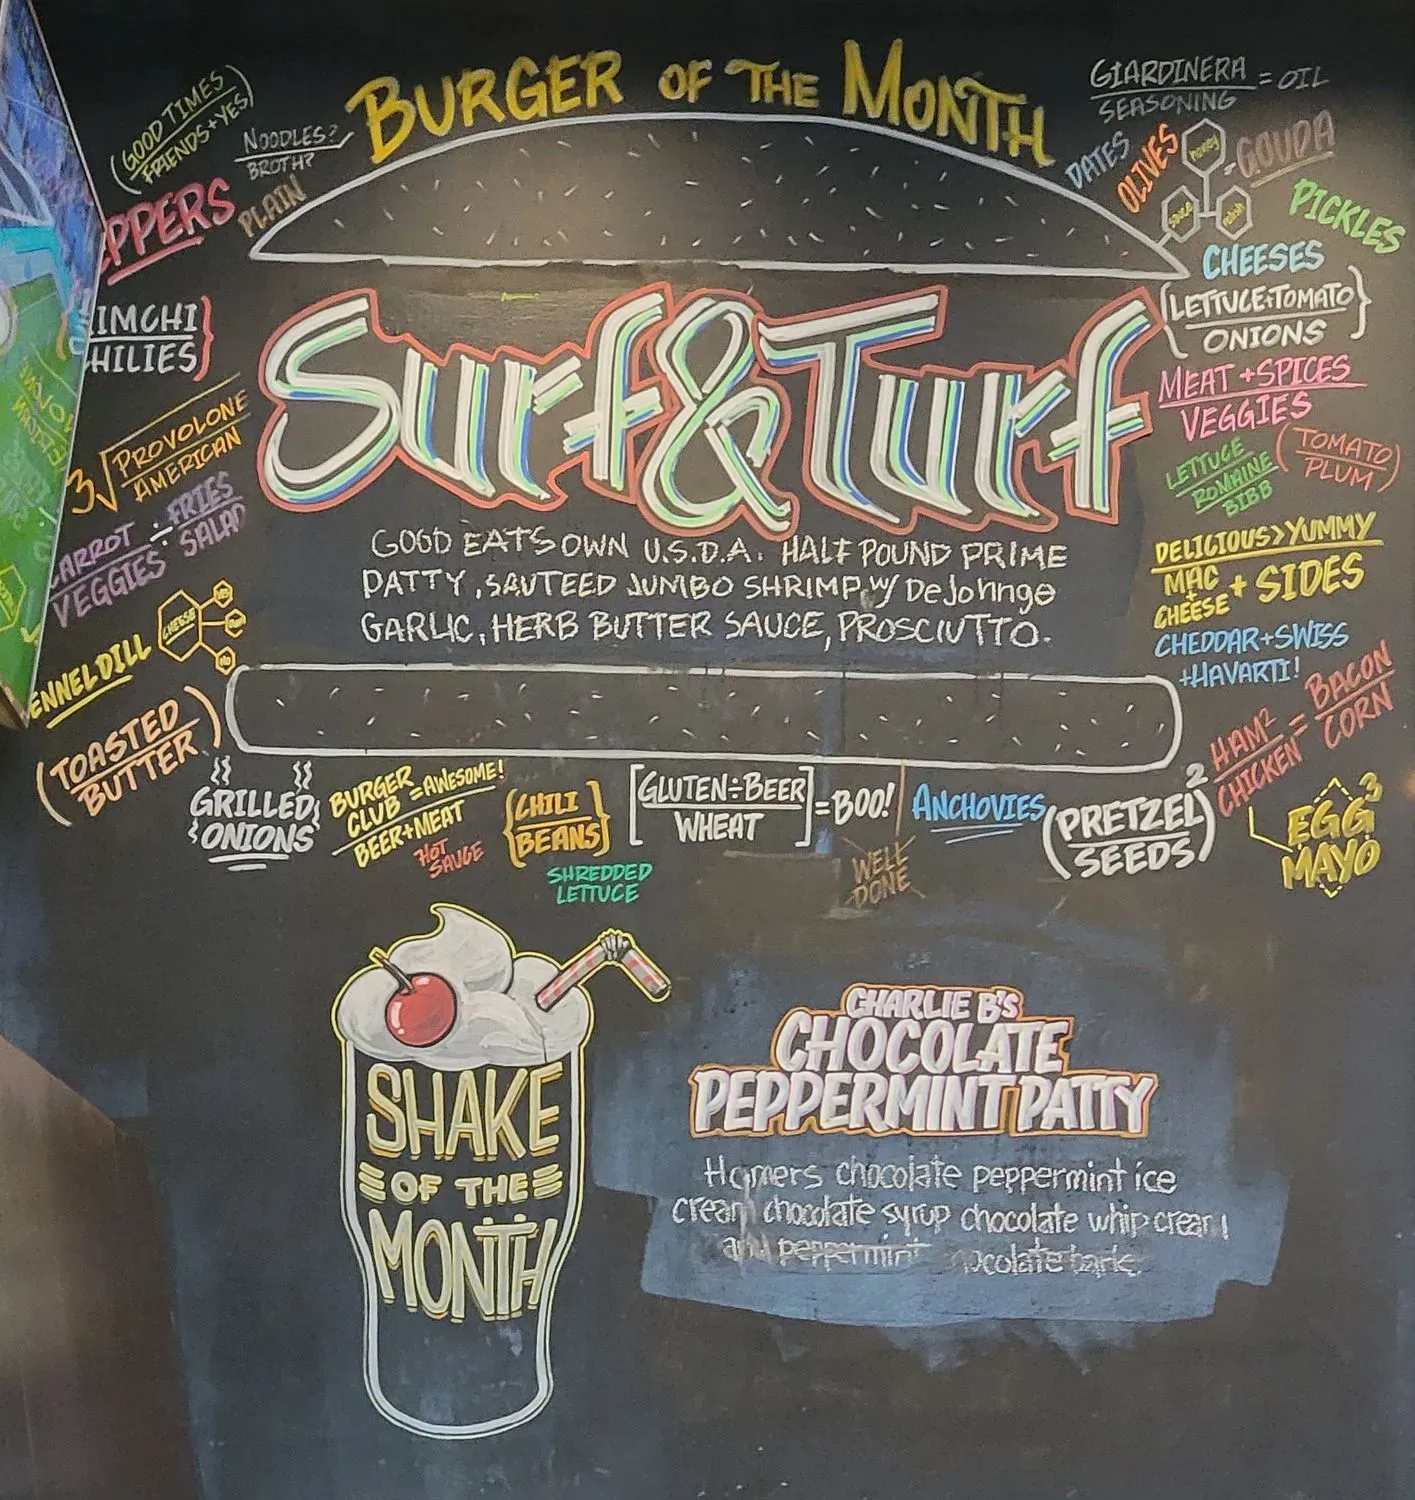 BURGER OF THE MONTH
(GOOD TIMES
FRIENDS+YES)
NOODLES?
BROTH?
PLAIN
PPERS
IMCHI
HILIES}
3√PROVOLONE
AMERICAN
ARROT ÷ FRIES
VEGGIES SALAD
CHEESE
ENNEL DILL
(TOASTED
BUTTER)
GIARDINERA = OIL
SEASONING
DATES
OLIVES
honey
sauce
relish
-GOUDA
PICKLES
CHEESES
(LETTUCE+TOMATO
ONIONS}
MEAT +SPICES
VEGGIES
LETTUCE
ROMAINE
BIBB
(TOMATO
PLUM)
DELICIOUS>YUMMY
MAC
+
CHEESE + SIDES
CHEDDAR+SWISS
+HAVARTI!
HAM² = BACON
CHICKEN CORN
Surf & Turf
GOOD EATS OWN U.S.D.A. HALF POUND PRIME
PATTY, SAUTEED JUMBO SHRIMP, w/ DeJohnge
GARLIC, HERB BUTTER SAUCE, PROSCIUTTO.
GRILLED
ONIONS
BURGER
CLUB =AWESOME!
BEER+MEAT
HOT
SAUCE
{CHILI
BEANS}
SHREDDED
LETTUCE
[GLUTEN÷BEER
WHEAT] =BOO!
WELL
DONE
ANCHOVIES
(PRETZEL
SEEDS)²
EGG³
MAYO
SHAKE
OF THE
MONTH
CHARLIE B'S
CHOCOLATE
PEPPERMINT PATTY
Homers chocolate peppermint ice
cream chocolate syrup chocolate whip cream
and peppermint chocolate bark.